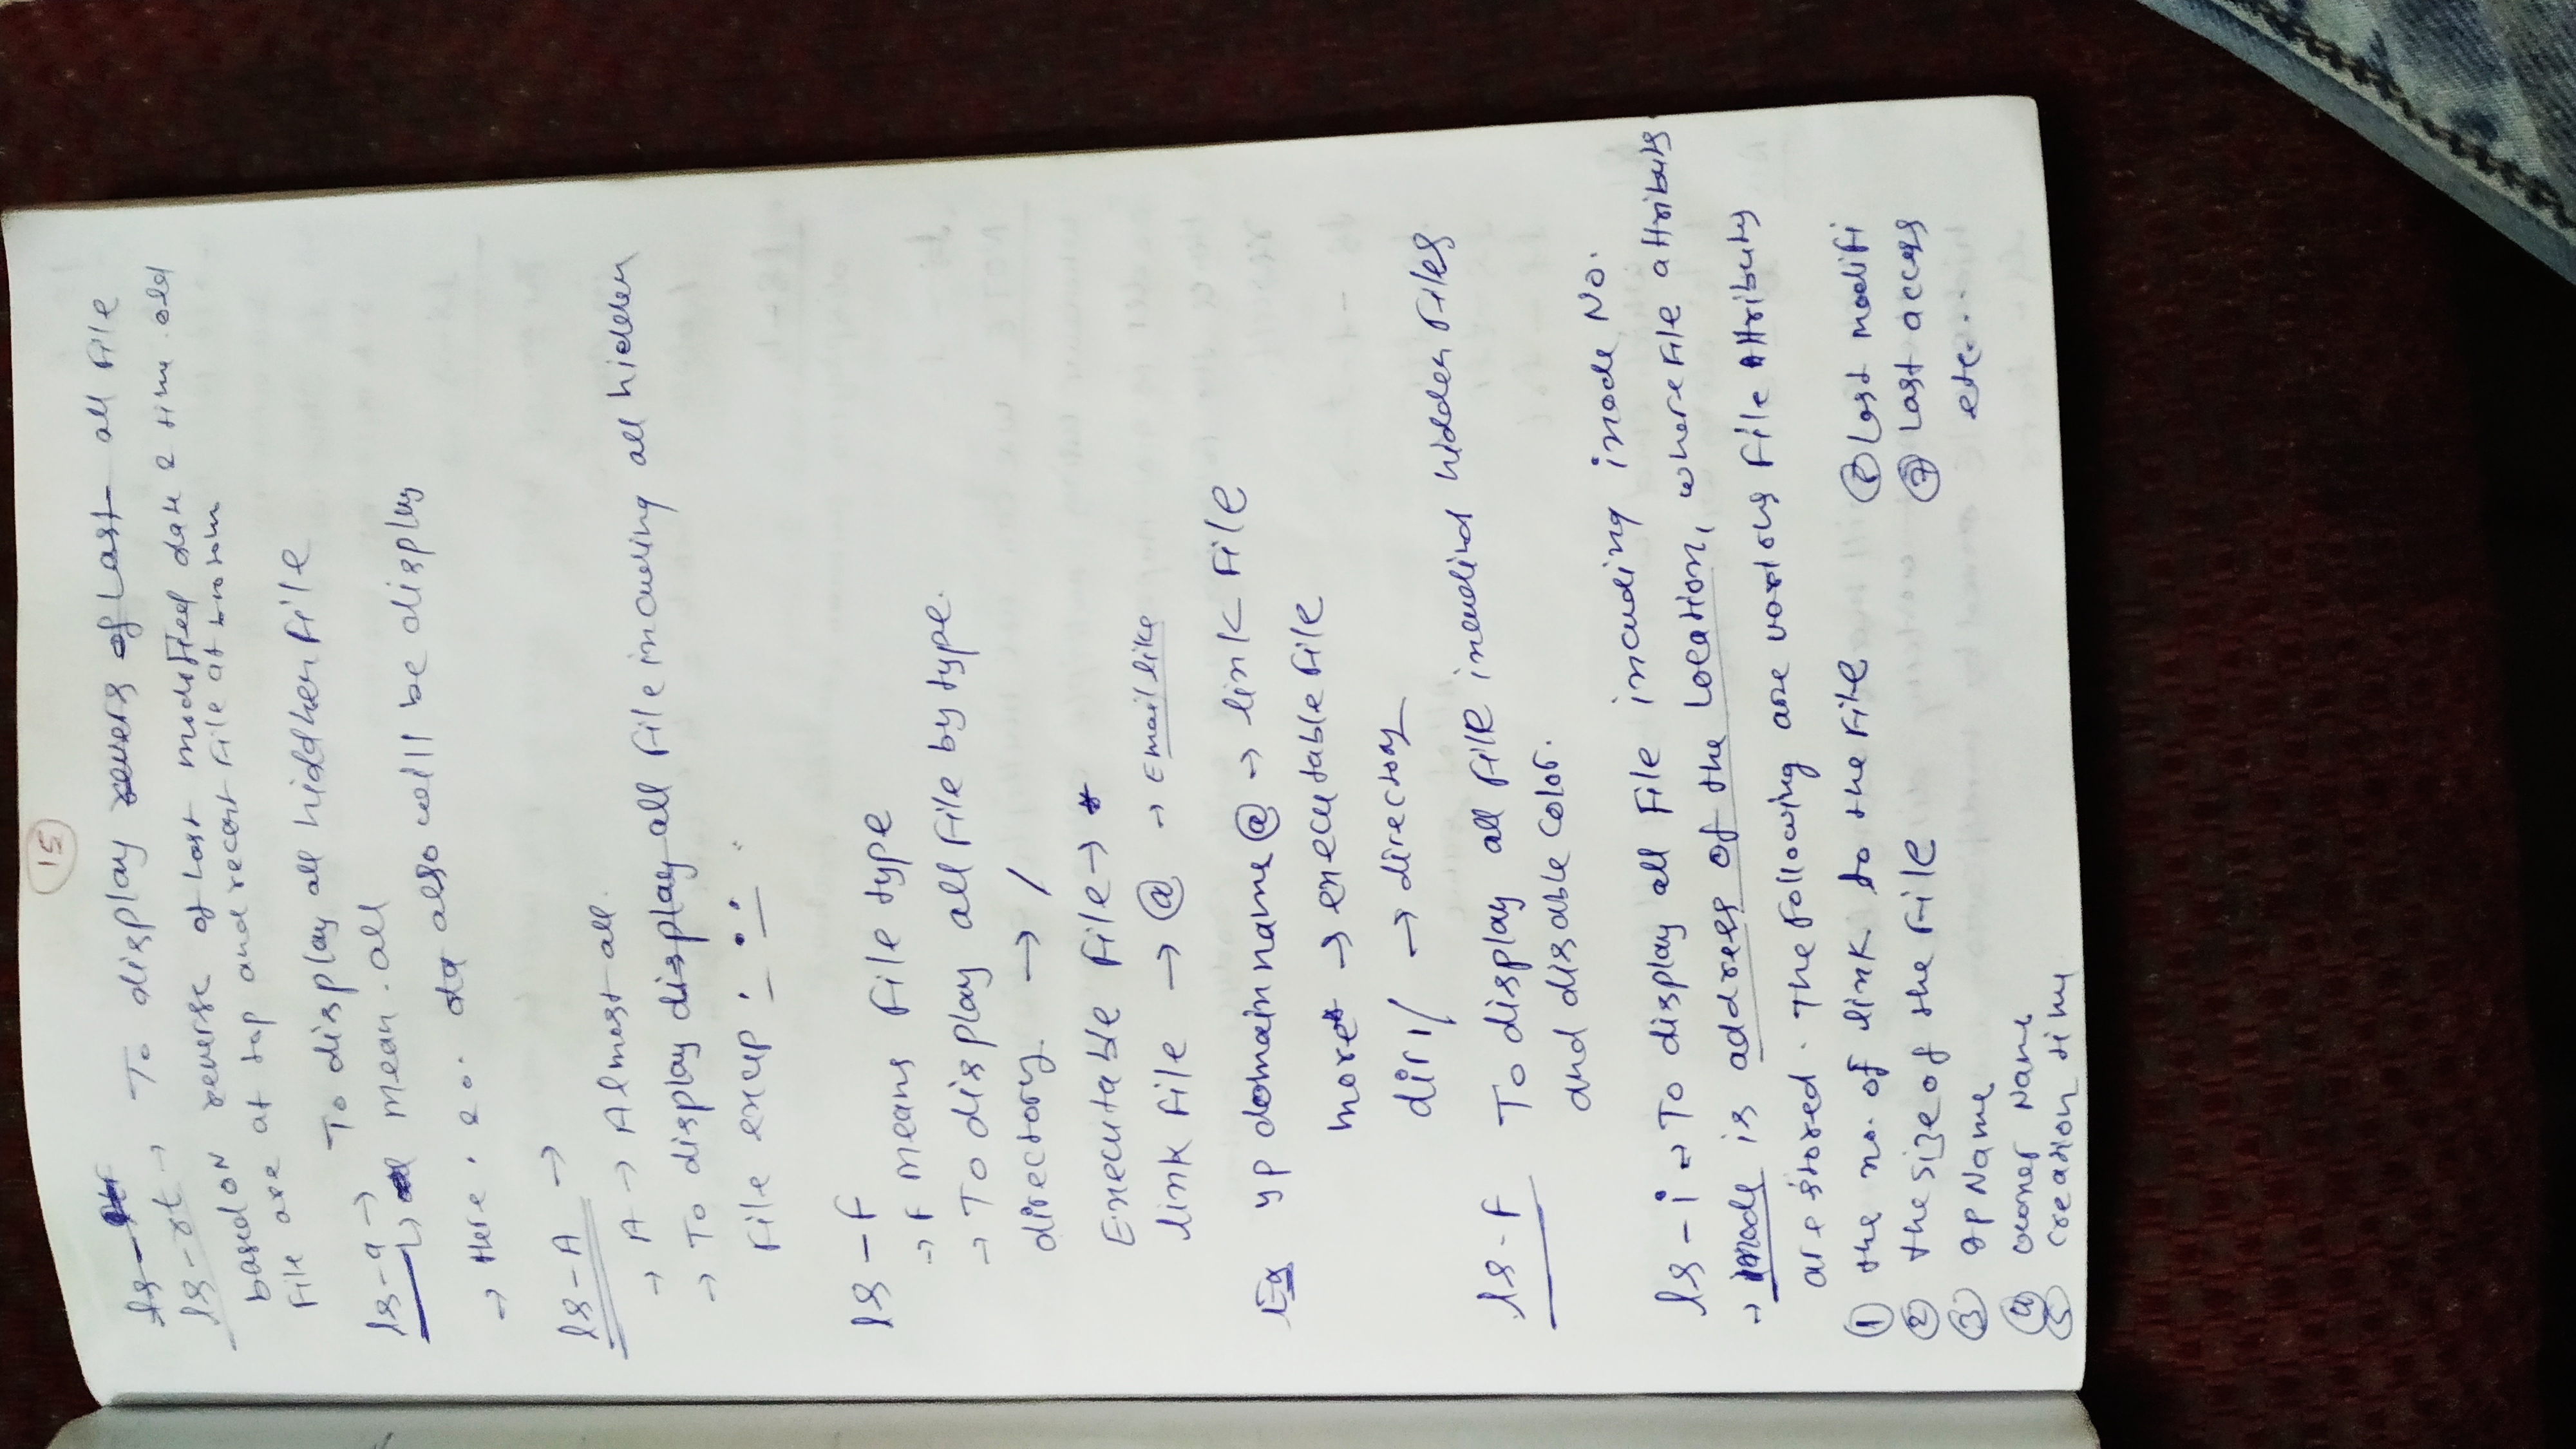 15
ls -rt → To display revers of Last all file
based on reverse of last modified date & time. old
file are at top and recent file at bottom
ls -a → To display all hiddhen file
↳ all mean . all
→ Here . & .. also will be display
ls -A →
→ A → Almost all.
→ To display display all file including all hidden
file excep . ..
ls -F
→ F means file type
→ To display all file by type.
directory. → /
Executable file → *
link file → @ → Email like
Ex ypdomainname@ → link file
more* → executable file
dir1/ → directory
ls -f To display all file includind hidden files
and disable color.
ls -i → To display all file incuding inode No.
→ inode is address of the Location, where file attributs
are stored. The following are various file Attributs
① the no. of link to the file
② the size of the file
③ gp Name
④ owner Name
⑤ creation time
Last modifi
⑦ Last access
etc...